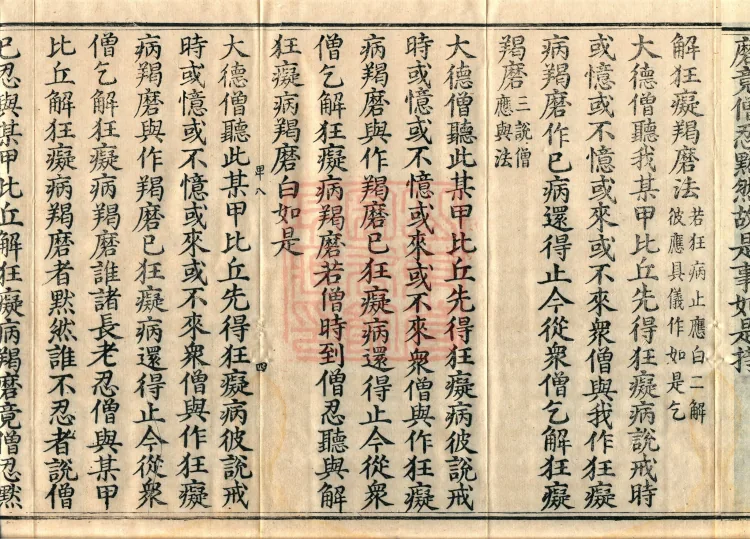 磨竟僧忍默然故是事如是持
解狂癡羯磨法 若狂病止應白二解
彼應具儀作如是乞
大德僧聽我某甲比丘先得狂癡病說戒時
或憶或不憶或來或不來衆僧與我作狂癡
病羯磨作已病還得止今從衆僧乞解狂癡
羯磨 三說僧
應與法
大德僧聽此某甲比丘先得狂癡病彼說戒
時或憶或不憶或來或不來衆僧與作狂癡
病羯磨與作羯磨已狂癡病還得止今從衆
僧乞解狂癡病羯磨若僧時到僧忍聽與解
狂癡病羯磨白如是
卑八 四
大德僧聽此某甲比丘先得狂癡病彼說戒
時或憶或不憶或來或不來衆僧與作狂癡
病羯磨與作羯磨已狂癡病還得止今從衆
僧乞解狂癡病羯磨誰諸長老忍僧與某甲
比丘解狂癡病羯磨者默然誰不忍者說僧
已忍與某甲比丘解狂癡病羯磨竟僧忍默